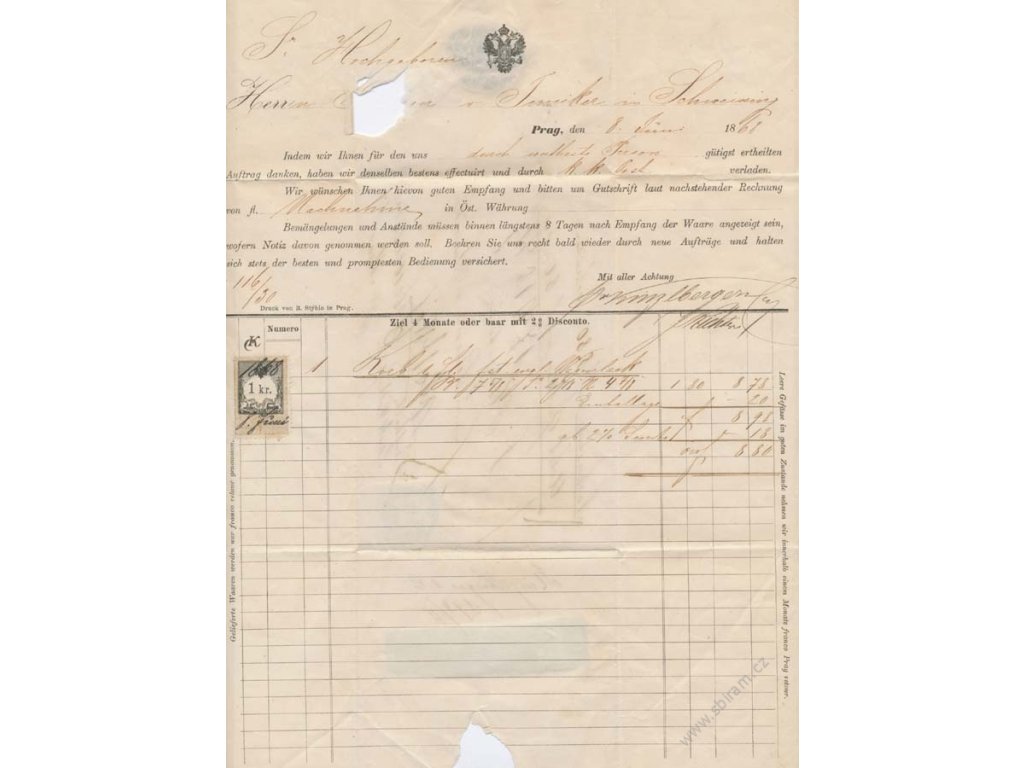 Sr Hochgeboren
Herrn v. in
Prag, den 8. Juni 1868
Indem wir Ihnen für den uns durch Person gütigst ertheilten
Auftrag danken, haben wir denselben bestens effectuirt und durch K. K. Post verladen.
Wir wünschen Ihnen hievon guten Empfang und bitten um Gutschrift laut nachstehender Rechnung
von fl. Nachnahme in Öst. Währung
Bemängelungen und Anstände müssen binnen längstens 8 Tagen nach Empfang der Waare angezeigt sein,
wofern Notiz davon genommen werden soll. Beehren Sie uns recht bald wieder durch neue Aufträge und halten
sich stets der besten und promptesten Bedienung versichert.
Mit aller Achtung
116/130
Druck von R. Styblo in Prag.
Numero
Ziel 4 Monate oder baar mit 2% Disconto.
K
1868
1 kr.
8. Juni
1
1 80 8 78
Emballage - 20
f 8 98
ab 2% - 18
8 80
Gelieferte Waaren werden nur franco retour genommen.
Leere Gefässe im guten Zustande nehmen wir innerhalb einem Monate franco Prag retour.
www.sbiram.cz